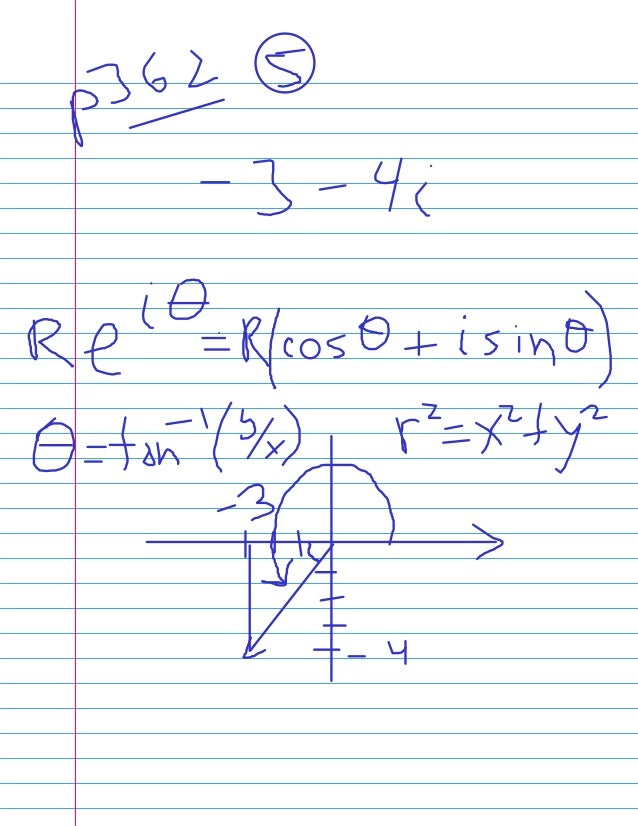 p362 ⑤
-3-4i
Re^{iθ}=R(cosθ+isinθ)
θ=tan^{-1}(y/x) r²=x²+y²
-3
-4